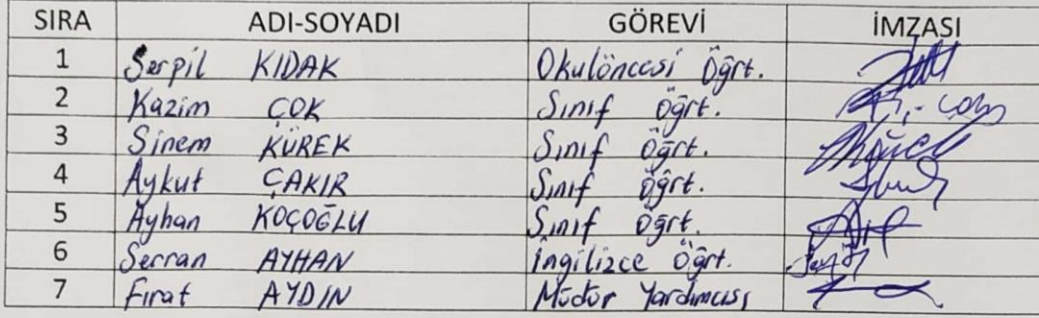 SIRA ADI-SOYADI GÖREVİ İMZASI
1 Serpil KIDAK Okulöncesi Öğrt.
2 Kazim ÇOK Sınıf Öğrt.
3 Sinem KÜREK Sınıf Öğrt.
4 Aykut ÇAKIR Sınıf Öğrt.
5 Ayhan KOÇOĞLU Sınıf Öğrt.
6 Serran AYHAN İngilizce Öğrt.
7 Fırat AYDIN Müdür Yardımcısı